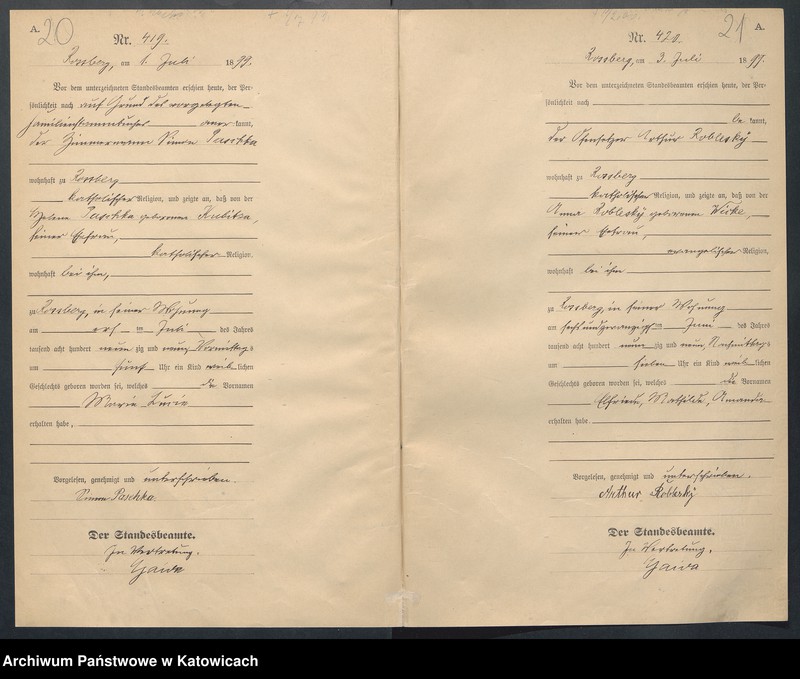 A.
20
Nr. 419.
Rossberg, am 1. Juli 1899.
Vor dem unterzeichneten Standesbeamten erschien heute, der Per-
sönlichkeit nach auf Grund des vorgelegten
Familienstammbuches kannt,
der Zimmermann Simon Paschka
wohnhaft zu Rossberg
katholischer Religion, und zeigte an, daß von der
Helene Paschka geborenen Kubitza,
seiner Ehefrau,
katholischer Religion,
wohnhaft bei ihm,
zu Rossberg, in seiner Wohnung
am ersten Juli des Jahres
tausend acht hundert neunzig und neun Vormittags
um fünf Uhr ein Kind weiblichen
Geschlechts geboren worden sei, welches die Vornamen
Marie Lucie
erhalten habe,
Vorgelesen, genehmigt und unterschrieben.
Simon Paschka
Der Standesbeamte.
In Vertretung.
Gaida
21
A.
Nr. 420.
Rossberg, am 3. Juli 1899.
Vor dem unterzeichneten Standesbeamten erschien heute, der Per-
sönlichkeit nach
bekannt,
der Ofensetzer Arthur Koblesky
wohnhaft zu Rossberg
katholischer Religion, und zeigte an, daß von der
Anna Koblesky geborenen
seiner Ehefrau,
evangelischer Religion,
wohnhaft bei ihm
zu Rossberg, in seiner Wohnung
am sechsundzwanzigsten Juni des Jahres
tausend acht hundert neunzig und neun, Nachmittags
um sieben Uhr ein Kind weiblichen
Geschlechts geboren worden sei, welches die Vornamen
Elfriede, Mathilde, Amanda
erhalten habe.
Vorgelesen, genehmigt und unterschrieben.
Arthur Koblesky
Der Standesbeamte.
In Vertretung.
Gaida
Archiwum Państwowe w Katowicach